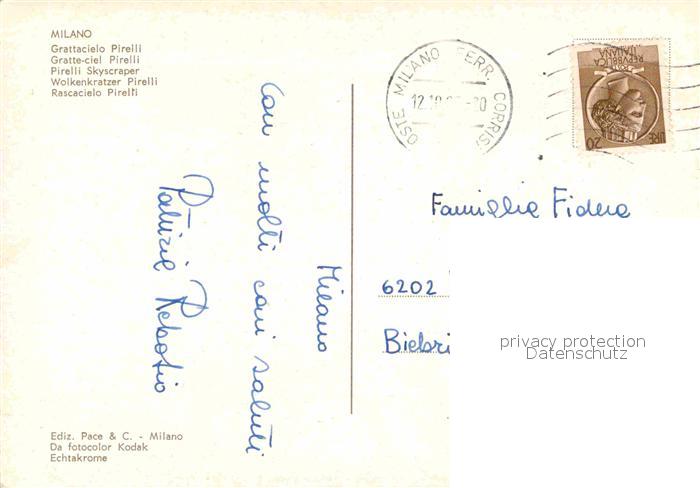 MILANO
Grattacielo Pirelli
Gratte-ciel Pirelli
Pirelli Skyscraper
Wolkenkratzer Pirelli
Rascacielo Pirelli
Milano
Con molti cari saluti
Ediz. Pace & C. - Milano
Da fotocolor Kodak
Echtakrome
OSTE MILANO FERR. CORRISP
12.10
REPVBBLICA
ITALIANA
LIRE 20
Famiglia
6202
Biebri
privacy protection
Datenschutz